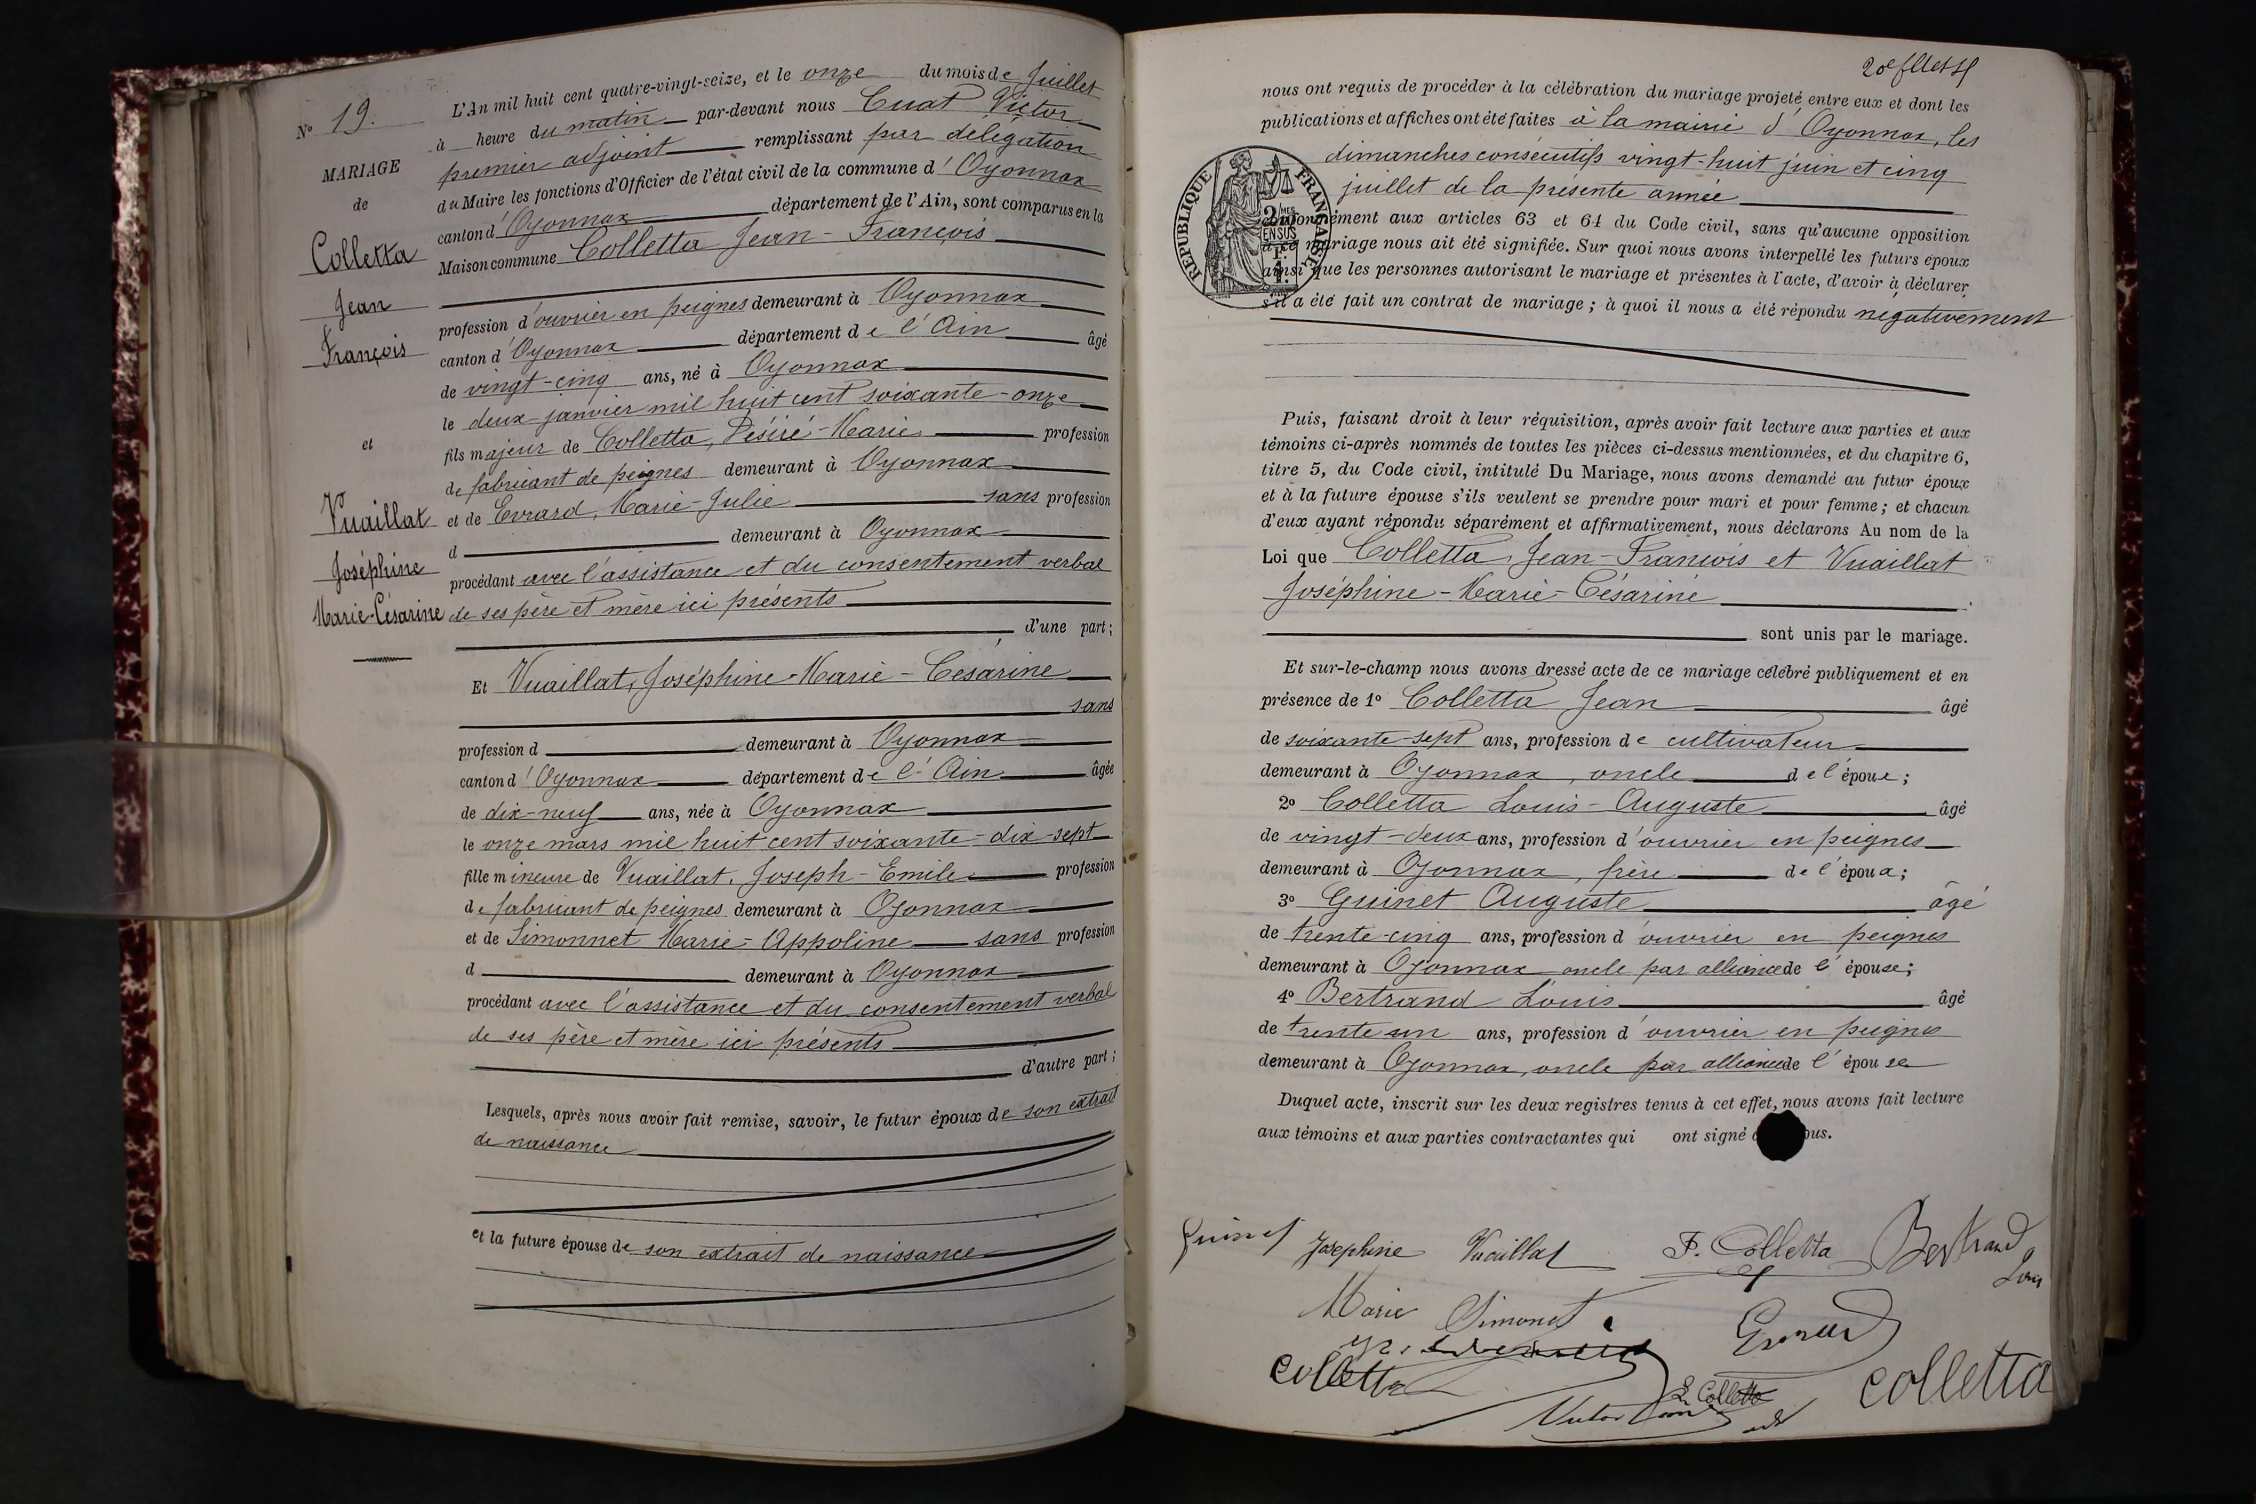 N° 19.
MARIAGE
de
Colletta
Jean
François
et
Vuaillat
Joséphine
Marie-Césarine
L'An mil huit cent quatre-vingt-seize, et le onze du mois de Juillet
à heure du matin par-devant nous Cuat Victor
premier adjoint remplissant par délégation
du Maire les fonctions d'Officier de l'état civil de la commune d'Oyonnax
canton d'Oyonnax département de l'Ain, sont comparus en la
Maison commune Colletta Jean-François
profession d'ouvrier en peignes demeurant à Oyonnax
canton d'Oyonnax département de l'Ain âgé
de vingt-cinq ans, né à Oyonnax
le deux janvier mil huit cent soixante-onze
fils majeur de Colletta, Désiré-Marie profession
de fabricant de peignes demeurant à Oyonnax
et de Evrard, Marie-Julie sans profession
d demeurant à Oyonnax
procédant avec l'assistance et du consentement verbal
de ses père et mère ici présents
d'une part;
Et Vuaillat, Joséphine-Marie-Césarine
sans
profession d demeurant à Oyonnax
canton d'Oyonnax département de l'Ain âgée
de dix-neuf ans, née à Oyonnax
le onze mars mil huit cent soixante-dix-sept
fille mineure de Vuaillat, Joseph-Emile profession
de fabricant de peignes demeurant à Oyonnax
et de Simonnet Marie-Appoline sans profession
d demeurant à Oyonnax
procédant avec l'assistance et du consentement verbal
de ses père et mère ici présents
d'autre part;
Lesquels, après nous avoir fait remise, savoir, le futur époux de son extrait
de naissance
et la future épouse de son extrait de naissance
nous ont requis de procéder à la célébration du mariage projeté entre eux et dont les
publications et affiches ont été faites à la mairie d'Oyonnax, les
dimanches consécutifs vingt-huit juin et cinq
juillet de la présente année
RÉPUBLIQUE FRANÇAISE
conformément aux articles 63 et 64 du Code civil, sans qu'aucune opposition
à ce mariage nous ait été signifiée. Sur quoi nous avons interpellé les futurs époux
ainsi que les personnes autorisant le mariage et présentes à l'acte, d'avoir à déclarer
s'il a été fait un contrat de mariage; à quoi il nous a été répondu négativement
Puis, faisant droit à leur réquisition, après avoir fait lecture aux parties et aux
témoins ci-après nommés de toutes les pièces ci-dessus mentionnées, et du chapitre 6,
titre 5, du Code civil, intitulé Du Mariage, nous avons demandé au futur époux
et à la future épouse s'ils veulent se prendre pour mari et pour femme; et chacun
d'eux ayant répondu séparément et affirmativement, nous déclarons Au nom de la
Loi que Colletta, Jean-François et Vuaillat
Joséphine-Marie-Césarine
sont unis par le mariage.
Et sur-le-champ nous avons dressé acte de ce mariage célébré publiquement et en
présence de 1° Colletta Jean âgé
de soixante-sept ans, profession de cultivateur
demeurant à Oyonnax, oncle de l'époux;
2° Colletta Louis-Auguste âgé
de vingt-deux ans, profession d'ouvrier en peignes
demeurant à Oyonnax, frère de l'époux;
3° Guinet Auguste âgé
de trente-cinq ans, profession d'ouvrier en peignes
demeurant à Oyonnax oncle par alliance de l'épouse;
4° Bertrand Louis âgé
de trente un ans, profession d'ouvrier en peignes
demeurant à Oyonnax, oncle par alliance de l'épouse
Duquel acte, inscrit sur les deux registres tenus à cet effet, nous avons fait lecture
aux témoins et aux parties contractantes qui ont signé ous.
Guinet Josephine Vuaillat F. Colletta Bertrand
Louis
Marie Simonet Evrard
Colletta
L. Colletta
colletta
Victor Cuat